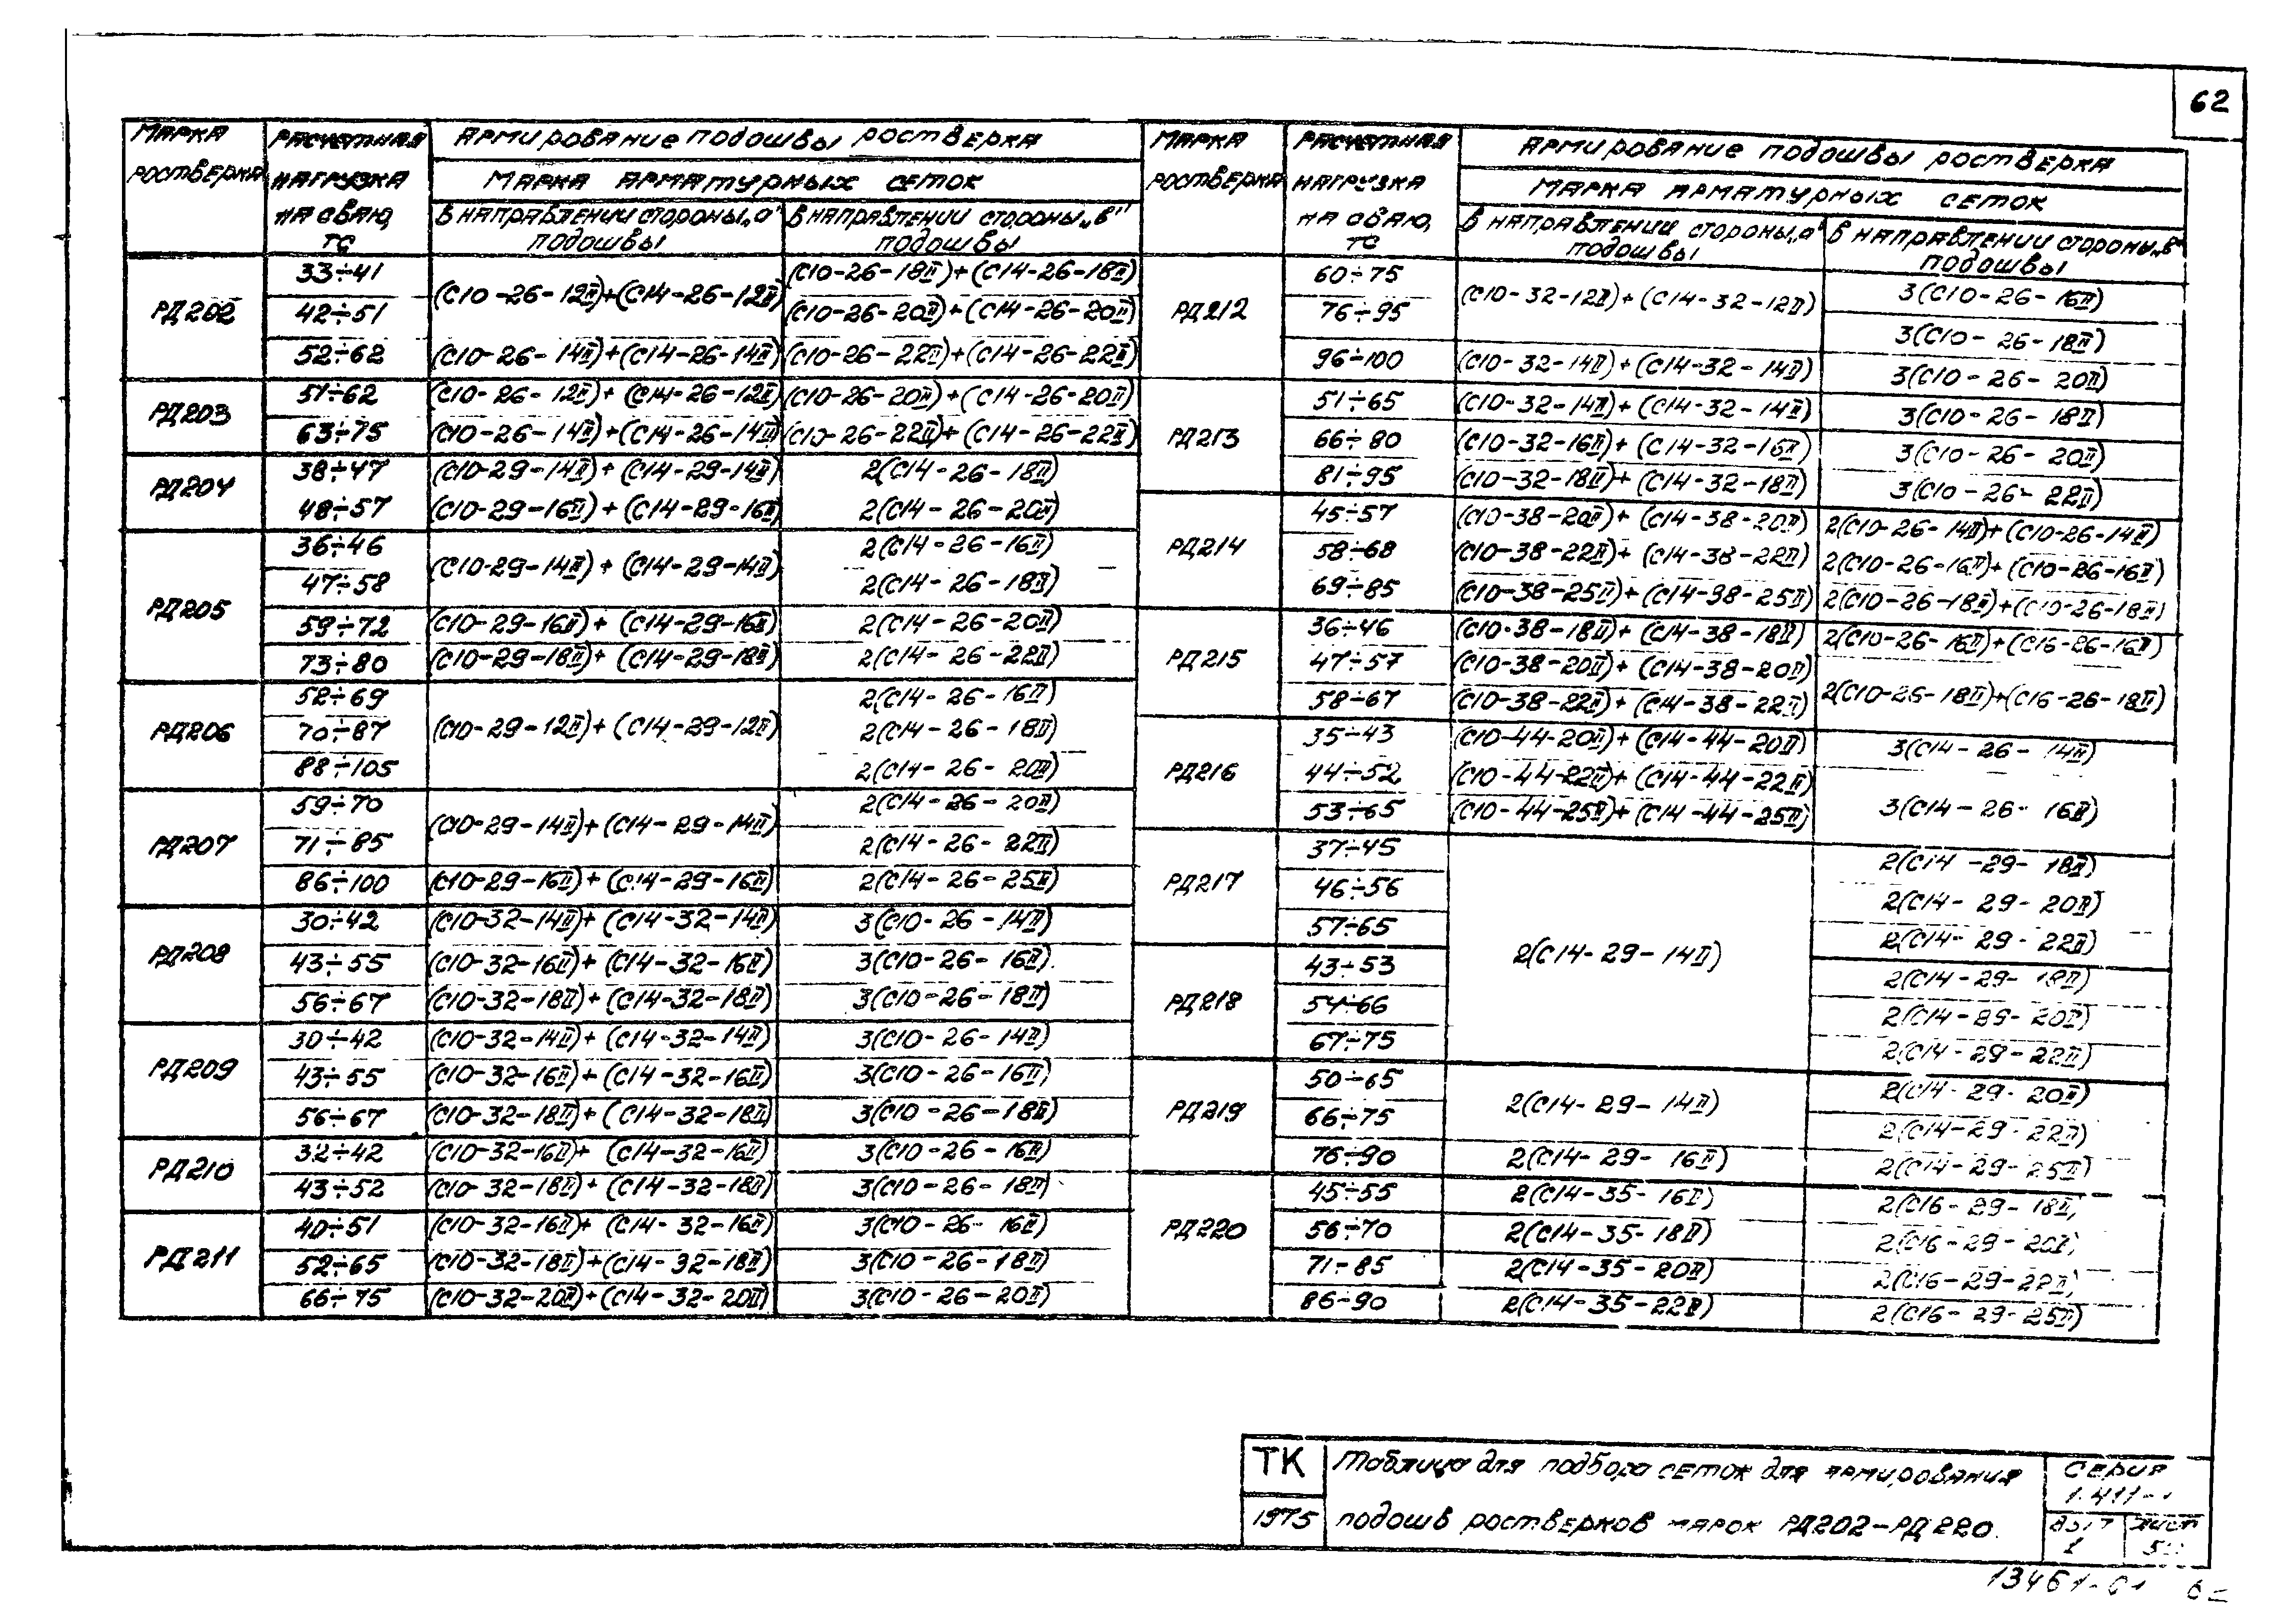 62
Марка ростверка | Расчетная нагрузка на сваю, тс | Армирование подошвы ростверка
Марка арматурных сеток
в направлении стороны „а" подошвы | в направлении стороны „в" подошвы
РД202
33÷41 | (С10-26-12II)+(С14-26-12II) | (С10-26-18II)+(С14-26-18II)
42÷51 | (С10-26-20II)+(С14-26-20II)
52÷62 | (С10-26-14II)+(С14-26-14II) | (С10-26-22II)+(С14-26-22II)
РД203
51÷62 | (С10-26-12II)+(С14-26-12II) | (С10-26-20II)+(С14-26-20II)
63÷75 | (С10-26-14II)+(С14-26-14II) | (С10-26-22II)+(С14-26-22II)
РД204
38÷47 | (С10-29-14II)+(С14-29-14II) | 2(С14-26-18II)
48÷57 | (С10-29-16II)+(С14-29-16II) | 2(С14-26-20II)
РД205
36÷46 | (С10-29-14II)+(С14-29-14II) | 2(С14-26-16II)
47÷58 | 2(С14-26-18II)
59÷72 | (С10-29-16II)+(С14-29-16II) | 2(С14-26-20II)
73÷80 | (С10-29-18II)+(С14-29-18II) | 2(С14-26-22II)
РД206
52÷69 | (С10-29-12II)+(С14-29-12II) | 2(С14-26-16II)
70÷87 | 2(С14-26-18II)
88÷105 | 2(С14-26-20II)
РД207
59÷70 | (С10-29-14II)+(С14-29-14II) | 2(С14-26-20II)
71÷85 | 2(С14-26-22II)
86÷100 | (С10-29-16II)+(С14-29-16II) | 2(С14-26-25II)
РД208
30÷42 | (С10-32-14II)+(С14-32-14II) | 3(С10-26-14II)
43÷55 | (С10-32-16II)+(С14-32-16II) | 3(С10-26-16II)
56÷67 | (С10-32-18II)+(С14-32-18II) | 3(С10-26-18II)
РД209
30÷42 | (С10-32-14II)+(С14-32-14II) | 3(С10-26-14II)
43÷55 | (С10-32-16II)+(С14-32-16II) | 3(С10-26-16II)
56÷67 | (С10-32-18II)+(С14-32-18II) | 3(С10-26-18II)
РД210
32÷42 | (С10-32-16II)+(С14-32-16II) | 3(С10-26-16II)
43÷52 | (С10-32-18II)+(С14-32-18II) | 3(С10-26-18II)
РД211
40÷51 | (С10-32-16II)+(С14-32-16II) | 3(С10-26-16II)
52÷65 | (С10-32-18II)+(С14-32-18II) | 3(С10-26-18II)
66÷75 | (С10-32-20II)+(С14-32-20II) | 3(С10-26-20II)
Марка ростверка | Расчетная нагрузка на сваю, тс | Армирование подошвы ростверка
Марка арматурных сеток
в направлении стороны „а" подошвы | в направлении стороны „в" подошвы
РД212
60÷75 | (С10-32-12II)+(С14-32-12II) | 3(С10-26-16II)
76÷95 | 3(С10-26-18II)
96÷100 | (С10-32-14II)+(С14-32-14II) | 3(С10-26-20II)
РД213
51÷65 | (С10-32-14II)+(С14-32-14II) | 3(С10-26-18II)
66÷80 | (С10-32-16II)+(С14-32-16II) | 3(С10-26-20II)
81÷95 | (С10-32-18II)+(С14-32-18II) | 3(С10-26-22II)
РД214
45÷57 | (С10-38-20II)+(С14-38-20II) | 2(С10-26-14II)+(С10-26-14II)
58÷68 | (С10-38-22II)+(С14-38-22II) | 2(С10-26-16II)+(С10-26-16II)
69÷85 | (С10-38-25II)+(С14-38-25II) | 2(С10-26-18II)+(С10-26-18II)
РД215
36÷46 | (С10-38-18II)+(С14-38-18II) | 2(С10-26-16II)+(С16-26-16II)
47÷57 | (С10-38-20II)+(С14-38-20II) | 2(С10-26-18II)+(С16-26-18II)
58÷67 | (С10-38-22II)+(С14-38-22II)
РД216
35÷43 | (С10-44-20II)+(С14-44-20II) | 3(С14-26-14II)
44÷52 | (С10-44-22II)+(С14-44-22II) | 3(С14-26-16II)
53÷65 | (С10-44-25II)+(С14-44-25II)
РД217
37÷45 | 2(С14-29-14II) | 2(С14-29-18II)
46÷56 | 2(С14-29-20II)
57÷65 | 2(С14-29-22II)
РД218
43÷53 | 2(С14-29-18II)
54÷66 | 2(С14-89-20II)
67÷75 | 2(С14-29-22II)
РД219
50÷65 | 2(С14-29-14II) | 2(С14-29-20II)
66÷75 | 2(С14-29-22II)
76÷90 | 2(С14-29-16II) | 2(С14-29-25II)
РД220
45÷55 | 2(С14-35-16II) | 2(С16-29-18II)
56÷70 | 2(С14-35-18II) | 2(С16-29-20II)
71÷85 | 2(С14-35-20II) | 2(С16-29-22II)
86÷90 | 2(С14-35-22II) | 2(С16-29-25II)
ТК
1975
Таблица для подбора сеток для армирования
подошв ростверков марок РД202-РД220.
Серия
1.411-1
Вып. 1
Лист
13461-01